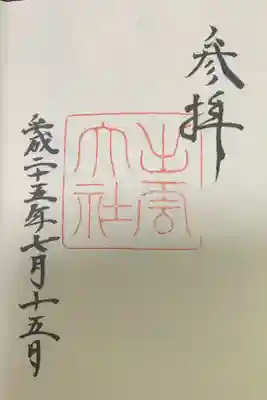 参拝
出雲大社
平成二十五年七月十五日